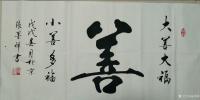 大善大福
善
小善多福
戊戌春月於京
張景祥書